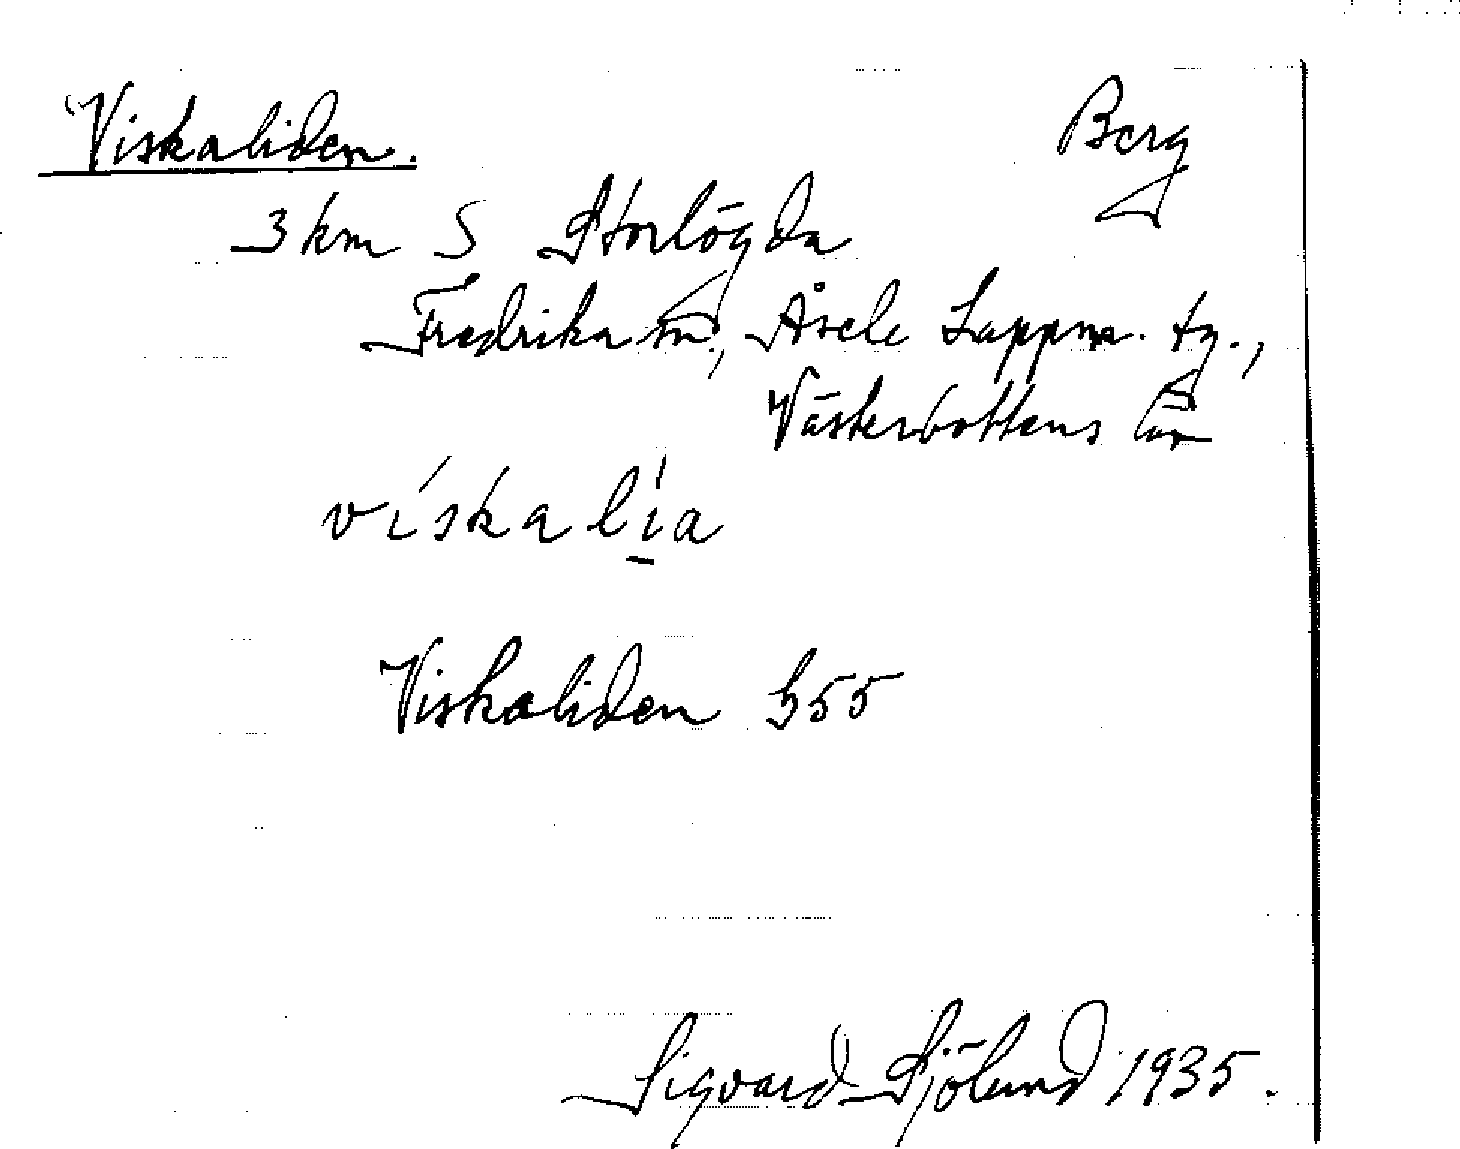 Viskaliden. Berg
3 km S Storlögda
Fredrika sn., Åsele Lappm. tg.,
Västerbottens län
vískalı́a
Viskaliden G55
Sigvard Sjölund 1935.